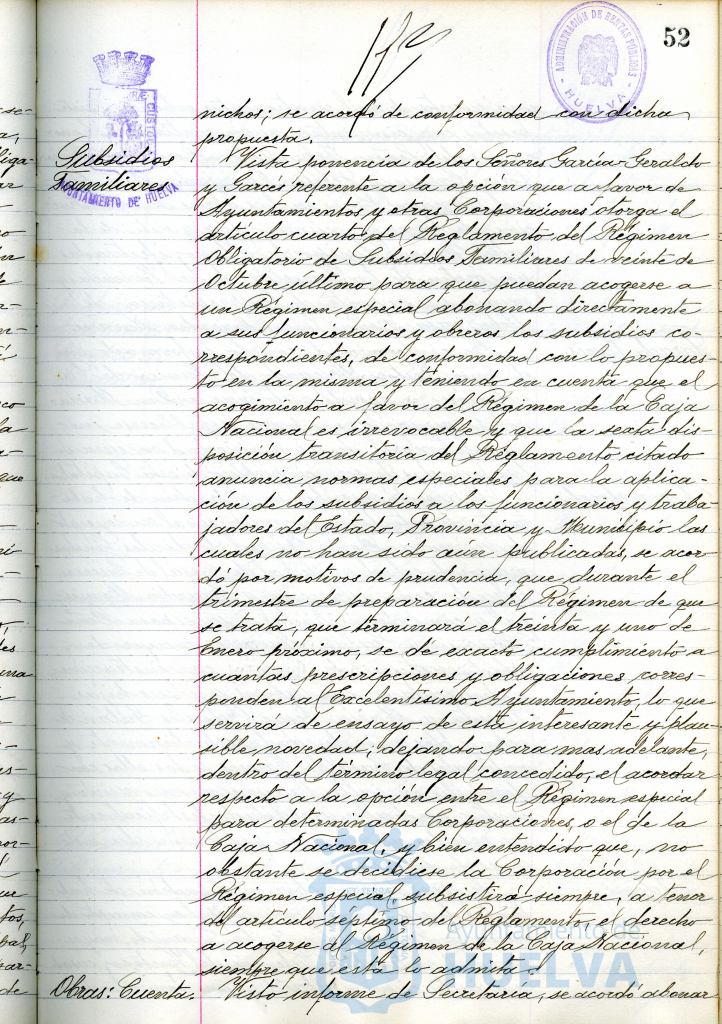 52
ADMINISTRACIÓN DE RENTAS PÚBLICAS
- HUELVA -
AYUNTAMIENTO DE HUELVA
nichos; se acordó de conformidad con dicha
propuesta.
Subsidios
Familiares
Vista ponencia de los Señores García-Geraldo
y Garcés referente a la opción que a favor de
Ayuntamientos y otras Corporaciones otorga el
artículo cuarto del Reglamento del Régimen
Obligatorio de Subsidios Familiares de veinte de
Octubre último para que puedan acogerse a
un Régimen especial abonando directamente
a sus funcionarios y obreros los subsidios co-
rrespondientes, de conformidad con lo propues-
to en la misma y teniendo en cuenta que el
acogimiento a favor del Régimen de la Caja
Nacional es irrevocable y que la sexta dis-
posición transitoria del Reglamento citado
anuncia normas especiales para la aplica-
ción de los subsidios a los funcionarios y traba-
jadores del Estado, Provincia y Municipio las
cuales no han sido aun publicadas, se acor-
dó por motivos de prudencia, que durante el
trimestre de preparación del Régimen de que
se trata, que terminará el treinta y uno de
Enero próximo, se de exacto cumplimiento a
cuantas prescripciones y obligaciones corres-
ponden al Excelentísimo Ayuntamiento, lo que
servirá de ensayo de esta interesante y plau-
sible novedad; dejando para mas adelante,
dentro del término legal concedido, el acordar
respecto a la opción entre el Régimen especial
para determinadas Corporaciones, o el de la
Caja Nacional, y bien entendido que, no
obstante se decidiese la Corporación por el
Régimen especial subsistirá siempre, a tenor
del artículo séptimo del Reglamento, el derecho
a acogerse al Régimen de la Caja Nacional,
siempre que esta lo admita.
Obras: Cuenta.
Visto informe de Secretaría, se acordó abonar
Ayuntamiento de
HUELVA